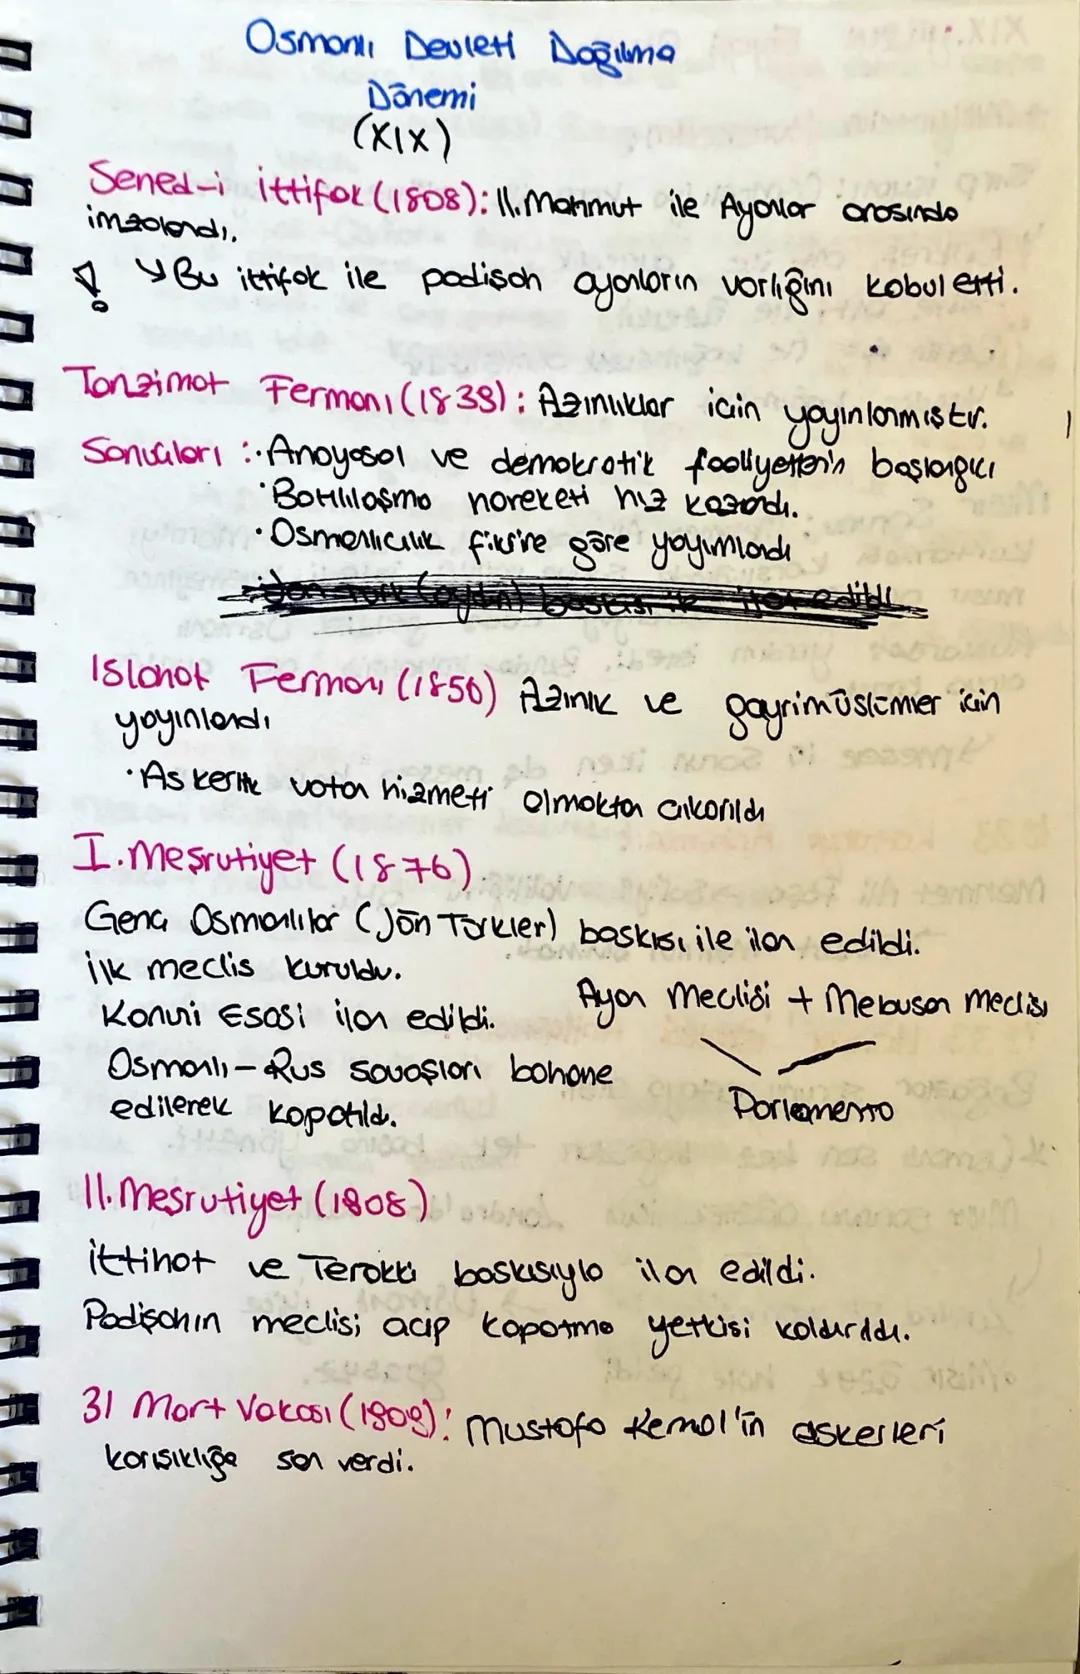 Osmanlı Devleti Dağılma
Dönemi
(XIX)
Sened-i ittifak (1808): II. Mahmut ile Ayanlar arasında
imzalandı.
! ↳ Bu ittifak ile padişah ayanların varlığını kabul etti.
Tanzimat Fermanı (1839): Azınlıklar için yayınlanmıştır.
Sonuçları : · Anayasal ve demokratik faaliyetlerin başlangıcı
· Batılılaşma hareketi hız kazandı.
· Osmanlıcılık fikrine göre yayımlandı
Islahat Fermanı (1856) Azınlık ve gayrimüslimler için
yayınlandı
· Askerlik vatan hizmeti olmaktan çıkarıldı
I. Meşrutiyet (1876)
Genç Osmanlılar (Jön Türkler) baskısı ile ilan edildi.
ilk meclis kuruldu.
Ayan Meclisi + Mebusan Meclisi
Kanuni Esasi ilan edildi.
Osmanlı - Rus savaşları bahane
Parlamento
edilerek kapatıldı.
II. Meşrutiyet (1908)
ittihat ve Terakki baskısıyla ilan edildi.
Padişahın meclisi açıp kapatma yetkisi kaldırıldı.
31 Mart Vakası (1909): Mustafa Kemal'in askerleri
karışıklığa son verdi.